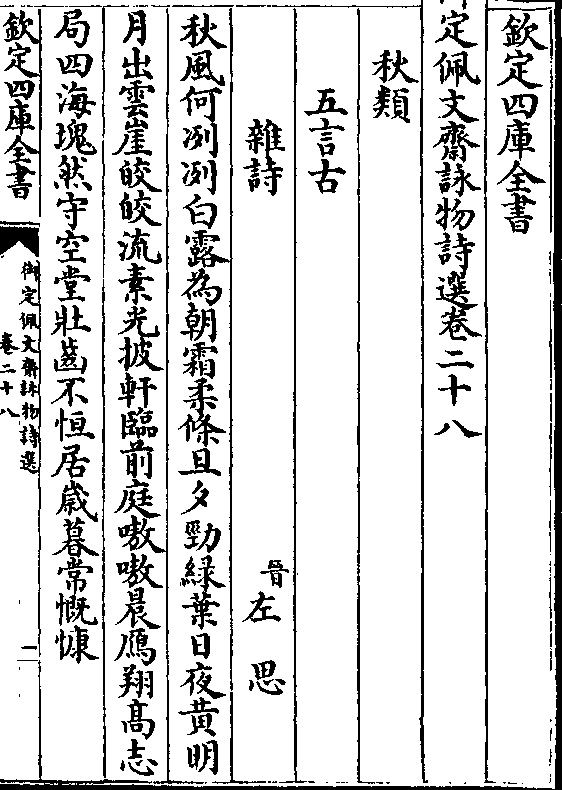 欽定四庫全書
定佩文齋詠物詩選卷二十八
秋類
五言古
雜詩 晉左思
秋風何冽冽白露為朝霜柔條旦夕勁綠葉日夜黃明
月出雲崖皎皎流素光披軒臨前庭嗷嗷晨鴈翔高志
局四海塊然守空堂壯齒不恒居歲暮常慨慷
欽定四庫全書
御定佩文齋詠物詩選
卷二十八
一